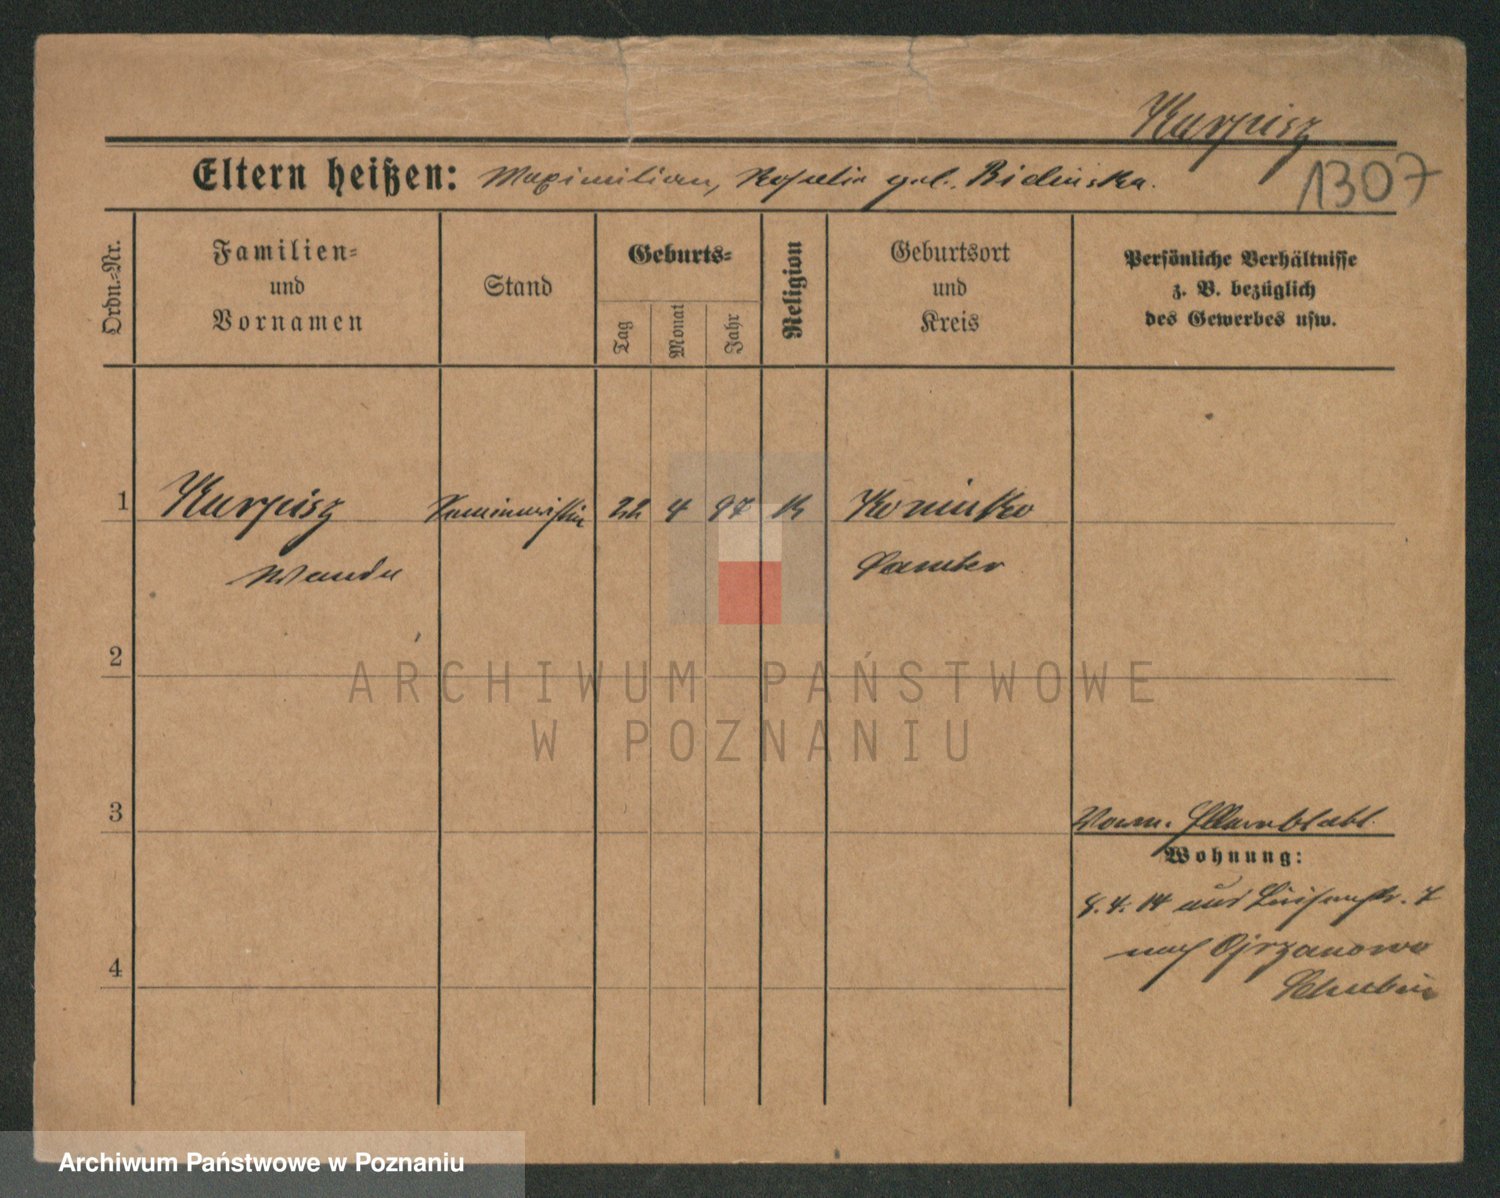 Kurpisz
1307
Eltern heißen: Maximilian, Rosalia geb. Bidinska.
Ordn.=Nr.
Familien=
und
Vornamen
Stand
Geburts=
Tag
Monat
Jahr
Religion
Geburtsort
und
Kreis
Persönliche Verhältnisse
z. B. bezüglich
des Gewerbes usw.
1 Kurpisz Seminaristin 22 4 97 K Koninko
Wanda Samter
2
ARCHIWUM PAŃSTWOWE
W POZNANIU
3
Vorm. Elternblatt
Wohnung:
8.4.14 aus Luisenstr. 7
nach Ojrzanowo
4
Schubin
Archiwum Państwowe w Poznaniu